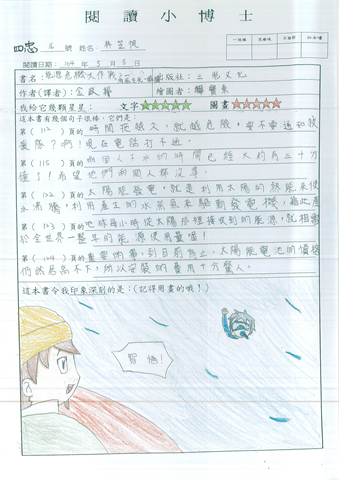 閱讀小博士
四忠 號 姓名：林芝帆
閱讀日期：104年5月5日
書名：危機大作戰 出版社：三采文化
作者(譯者)：金政郁 繪圖者：
我給它幾顆星星： 文字☆☆☆☆☆ 圖畫☆☆☆☆☆
這本書有幾個句子很棒，它們是：
第(112)頁的時間拖越久，就越危險，要不要通知救
援隊？啊！現在電話打不通。
第(115)頁的兩個人下水的時間已經大約有三十分
鐘了！希望他們兩個人都沒事。
第(122)頁的太陽能發電，就是利用太陽的熱能來使
水沸騰，利用產生的水蒸氣來驅動發電機，藉此產
第(123)頁的地球每小時從太陽那裡接收到的能源，就相當
於全世界一整年的能源使用量喔！
第(124)頁的重要的事，到目前為止，太陽能電池的價格
仍然居高不下，所以安裝的費用十分驚人。
這本書令我印象深刻的是：(記得用畫的哦！)